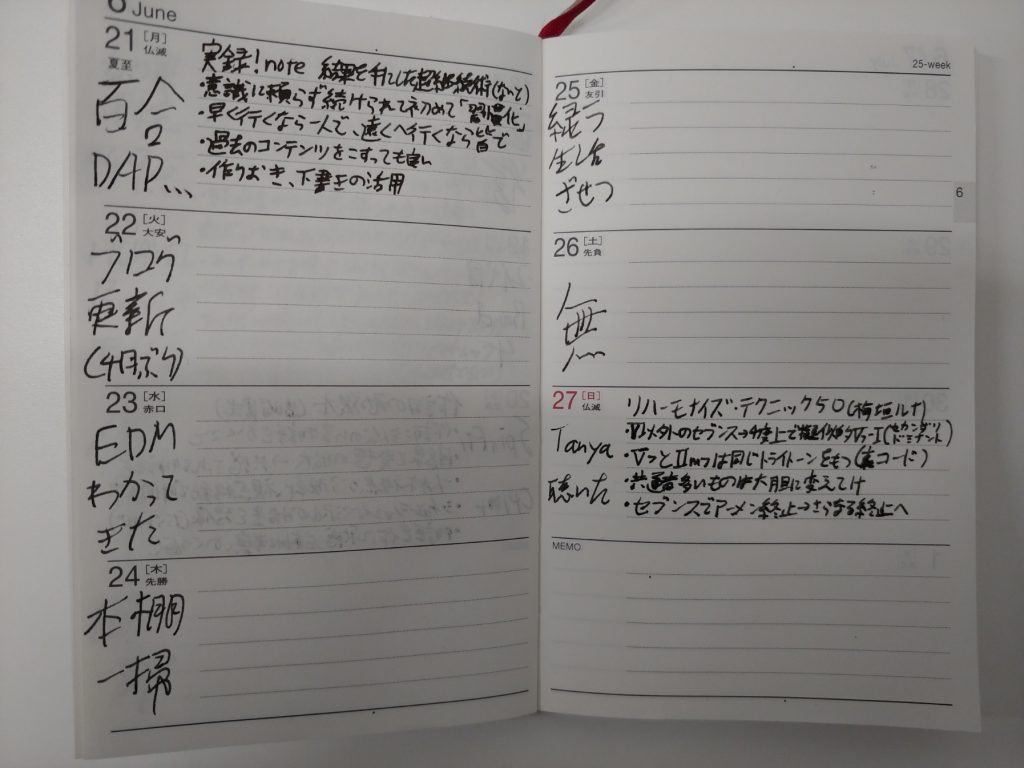 6 June
21 [月]
仏滅
夏至
百合
DAP...
実録!note 編 した超継続術(なって)
・意識に頼らず続けられて初めて「習慣化」
・早く行くなら一人で、遠くへ行くなら皆で
・過去のコンテンツをこすっても良い
・作りおき、下書きの活用
22 [火]
大安
ブログ
更新
(4月ぶり)
23 [水]
赤口
EDM
わかって
きた
24 [木]
先勝
本棚
一掃
25-week
25 [金]
友引
緑つ
生活
ざせつ
6
26 [土]
先負
無
27 [日]
仏滅
Tanya
聴いた
リハーモナイズ・テクニック50(梅垣ルナ)
・ 以外のセブンス→4度上で Ⅴ₇-Ⅰ(セカンダリドミナント)
・Ⅴ₇とⅡm₇は同じトライトーンをもつ(裏コード)
・共通音多いもの 大胆に変えてけ
・セブンスでアーメン終止→さらなる終止へ
MEMO